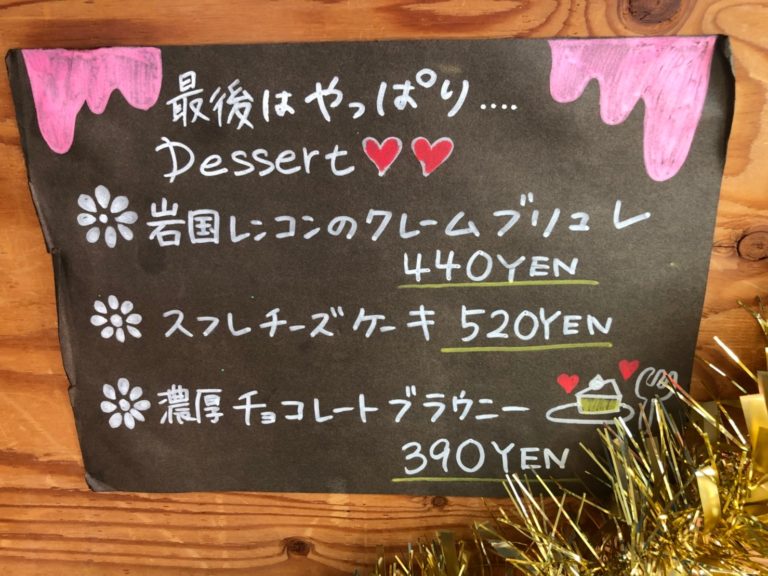 最後はやっぱり....
Dessert
岩国レンコンのクレームブリュレ
440YEN
スフレチーズケーキ 520YEN
濃厚チョコレートブラウニー
390YEN